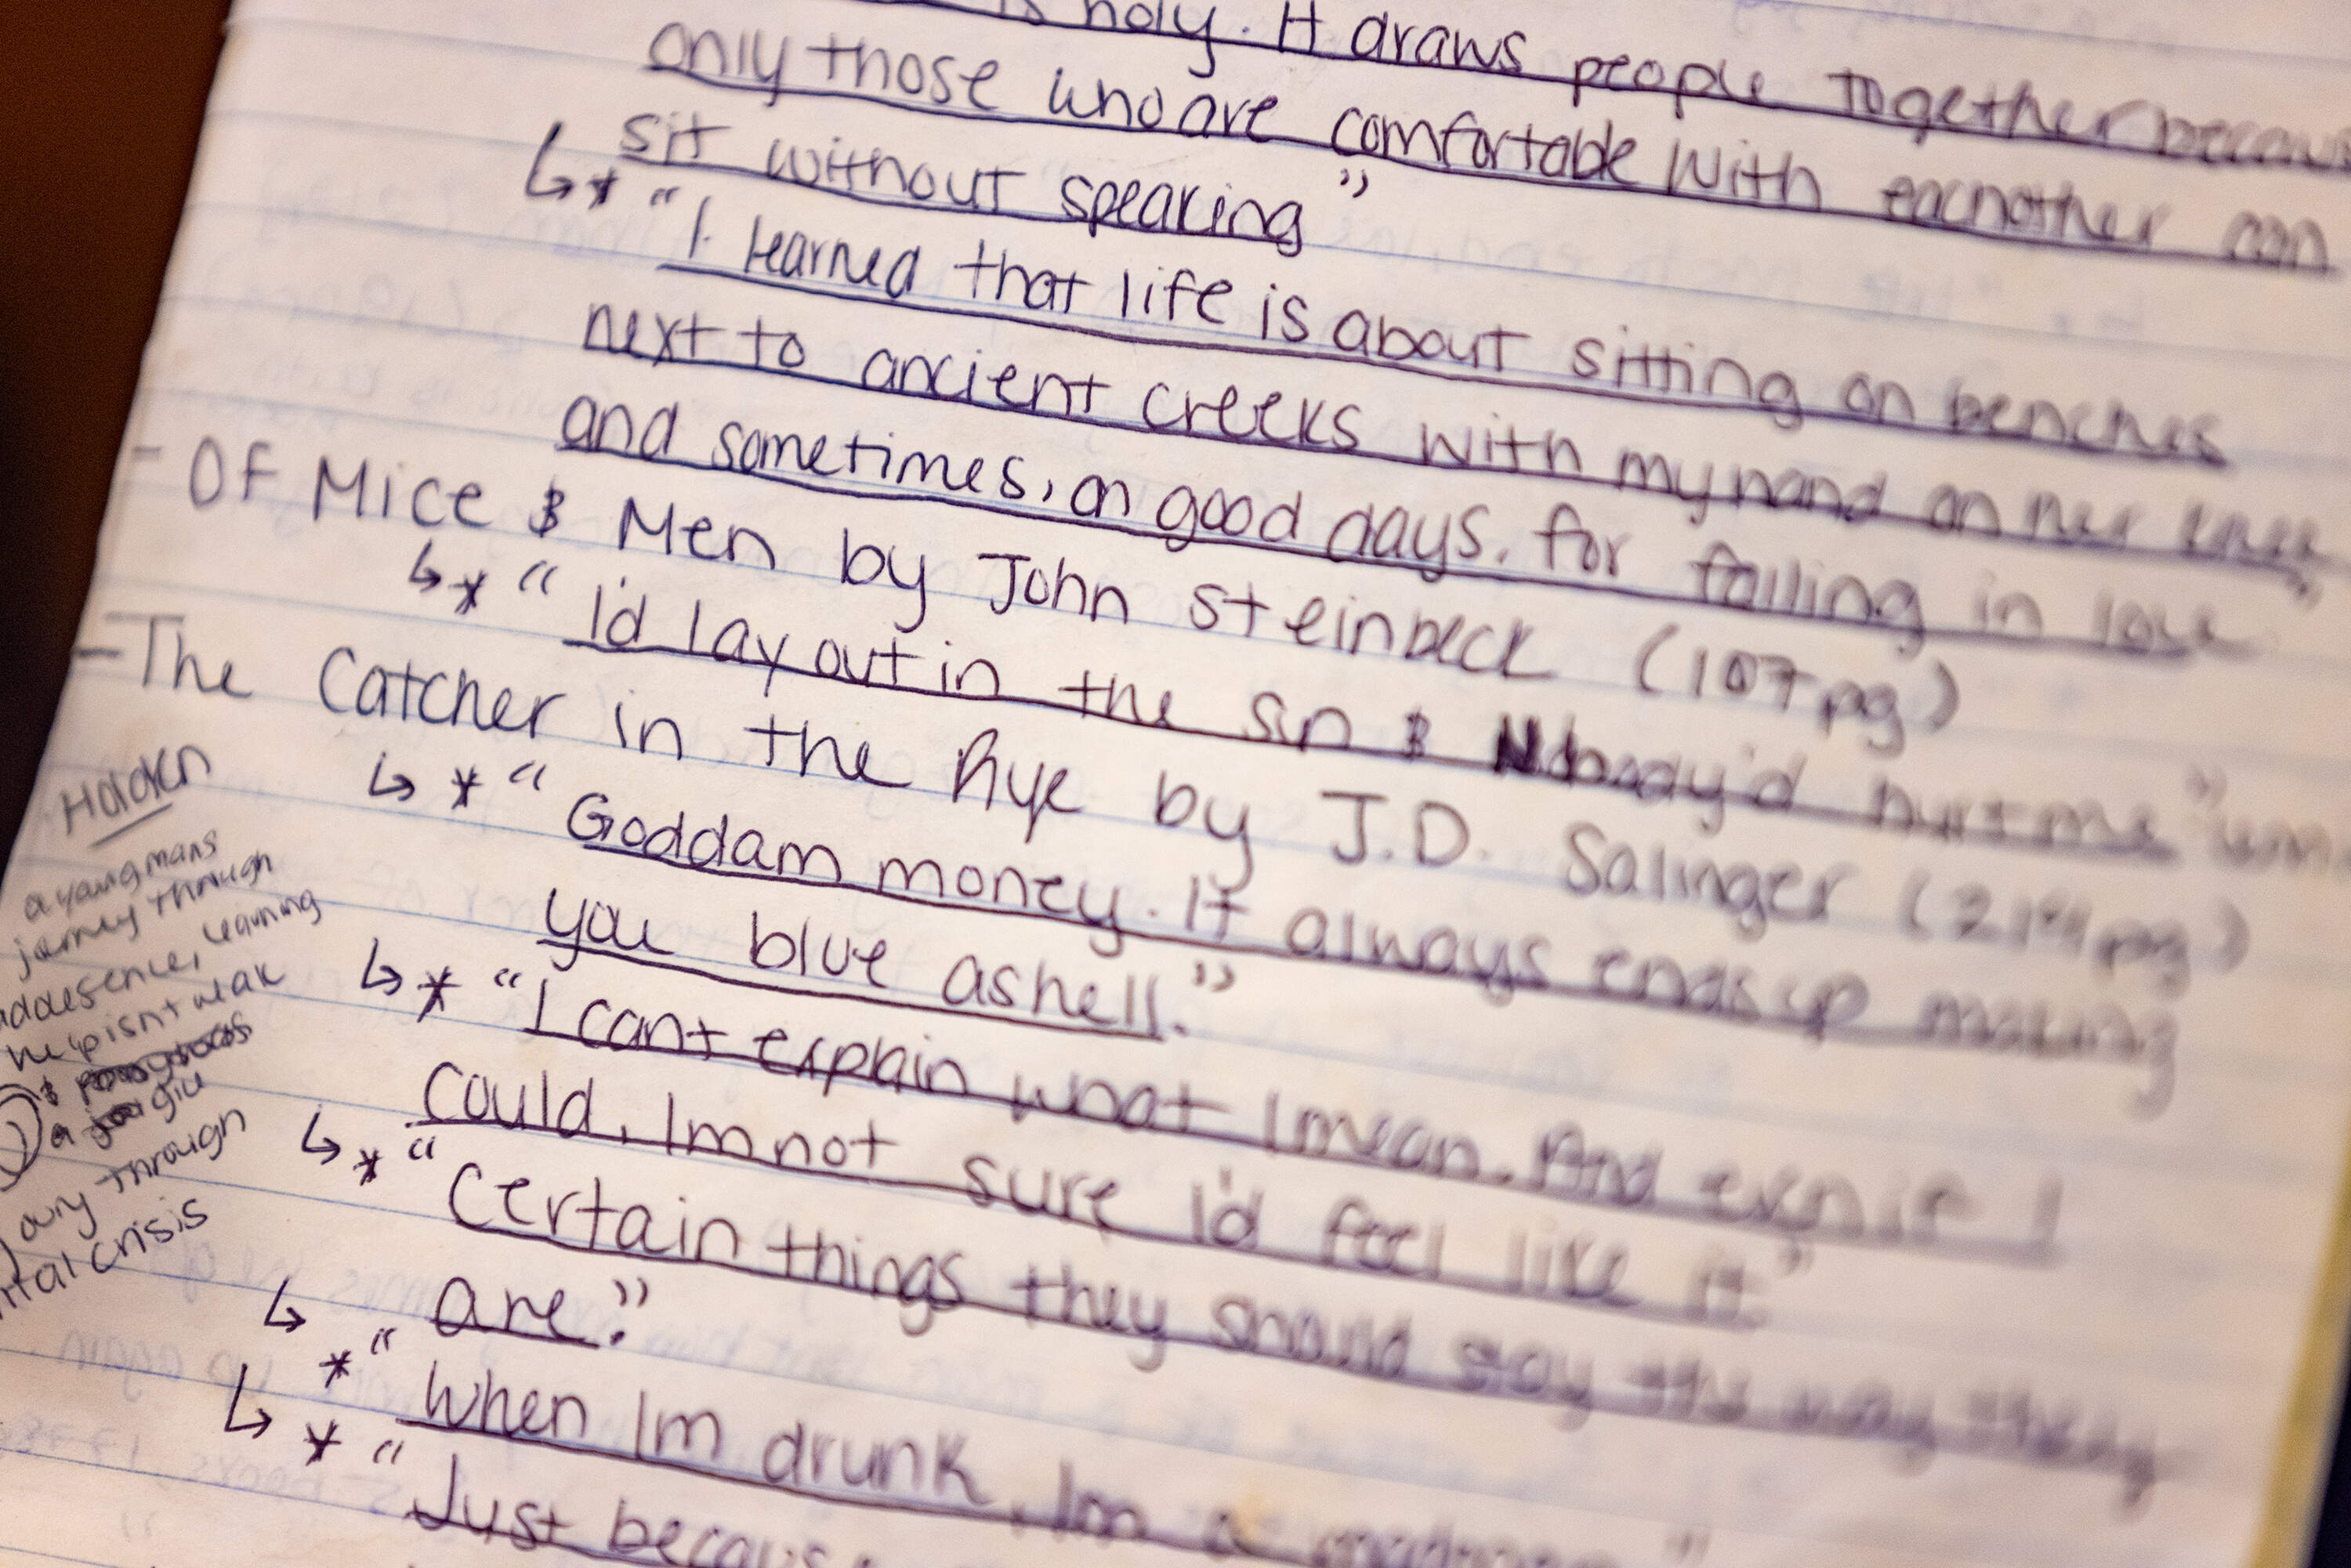 is holy. It draws people together because
only those who are comfortable with eachother can
sit without speaking"
↳ * "I learned that life is about sitting on benches
next to ancient creeks with my hand on her knee
and sometimes, on good days, for falling in love."
- Of Mice & Men by John Steinbeck (107pg)
↳ * "I'd lay out in the sun & Nobody'd hurt me"
- The Catcher in the Rye by J.D. Salinger (214pg)
↳ * "Goddam money. It always ends up making
you blue as hell."
↳ * "I cant explain what I mean. And even if I
could, Im not sure I'd feel like it."
↳ * "Certain things they should stay the way they
are."
↳ * "When Im drunk, Im a madman"
↳ * "Just because
Holden
a young mans
journey through
adolesence, learning
help isnt weak
&
a
through
crisis